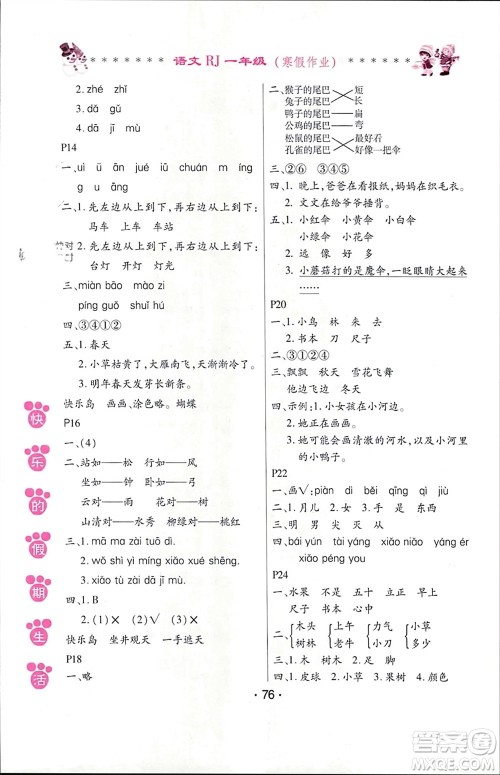 语文 RJ 一年级（寒假作业）
2. zhé zhǐ
3. dā gǔ
P14
一、uì ü ān jué iǔ chuán míng
g āng uā ǎo
二、1. 先左边从上到下，再右边从上到下。
上车 马车 车站
2. 先左边从上到下，再右边从上到下。
台灯 开灯 灯光
三、miàn bāo mà yǐ
píng guǒ shuǐ hú
四、③④①②
五、1. 春天
2. 小草枯黄了，大雁南飞，天渐渐冷了。
3. 明年春天发芽长新条。
快乐岛 画画、涂色略。蝴蝶
P16
一、(4)
二、站如——松 行如——风
坐如——钟 卧如——弓
云对——雨 花对——树
山清对——水秀 柳绿对——桃红
三、1. mǎ zài tuō dì.
2. wǒ shì yì míng xiǎo xué shēng
3. xiǎo tù zài dā jī mù.
四、1. B
2. (1)× (2)✓ (3)✓
快乐岛 坐井观天 一飞冲天
P18
一、略
二、猴子的尾巴 短
兔子的尾巴 长
鸭子的尾巴 扁
公鸡的尾巴 弯
松鼠的尾巴 最好看
孔雀的尾巴 好像一把伞
三、②⑥ ③④⑤
四、1. 晚上，爸爸在看报纸，妈妈在织毛衣。
2. 文文在给爷爷捶背。
五、1. 小红伞 小黄伞 小白伞
小绿伞 小花伞
2. 远 像 好 多
3. 小蘑菇打的是魔伞，一眨眼睛大起来……
P20
一、1. 小鸟 林 来 去
2. 书本 刀 尺子
二、③①②④
三、飘飘 秋天 雪花飞舞
他边飞边 弯弯
四、示例：1. 小女孩在小河边。
2. 她正在画画。
3. 她可能会画清澈的河水，以及小河里的小鸭子。
P22
一、画✓：piàn dì běi qīng jiù
二、1. 月儿 2. 女 3. 手 4. 东西
三、明 男 尖 灭
四、bái yún tài yáng xiǎo niǎo yīng ér
xiǎo péng you
P24
一、水果 不是 五十 立正 早上
尺子 书本 心中
二、木头 树林 上午 老牛 力气 力量 小草 了不起
三、1. 林 2. 本 3. 足 4. 脚
四、1. 皮球 2. 小草 3. 果树 4. 颜色
快乐的假期生活
· 76 ·
答案圈
MXQE.COM